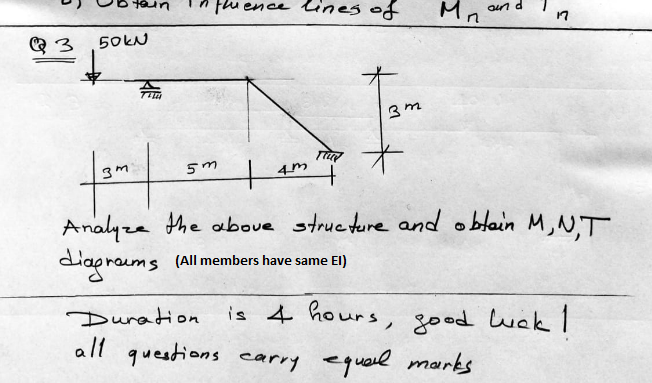 b) Obtain influence lines of Mn and Tn
Q 3 50kN
3m
3m 5m 4m
Analyze the above structure and obtain M,N,T
diagrams (All members have same EI)
Duration is 4 hours, good luck!
all questions carry equal marks